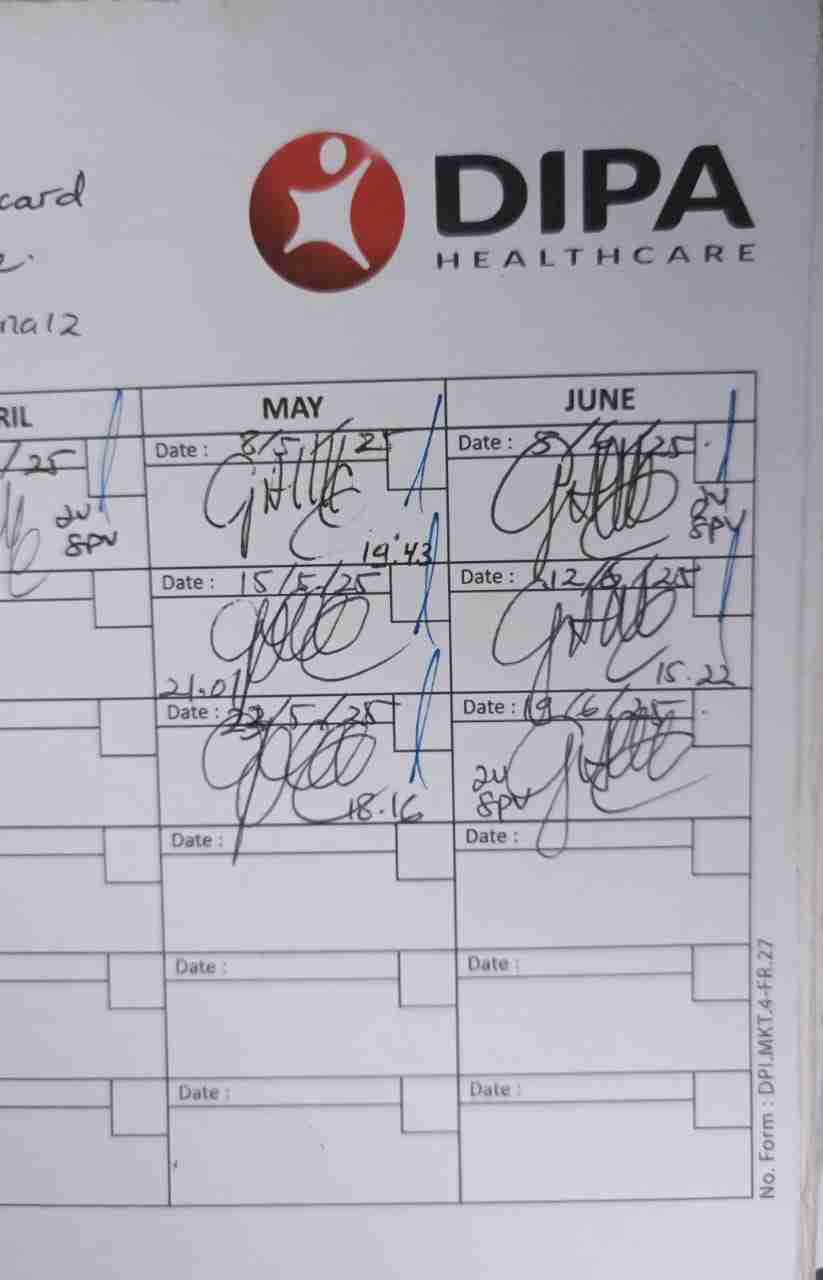 card
DIPA
HEALTHCARE
RIL
MAY
JUNE
/25
Date : 8/5/25
Date : 8/6/25
2U
SPV
19.43
2U
SPV
Date : 15/5/25
Date : 12/6/25
21.01
15.22
Date : 22/5/25
Date : 19/6/25
18.16
2U
SPV
Date :
Date :
Date :
Date :
Date :
Date :
No. Form : DPI.MKT.4-FR.27